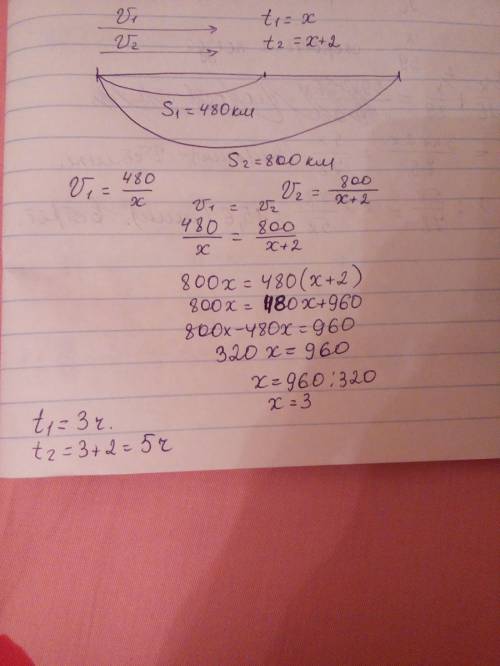 V₁ t₁ = x
V₂ t₂ = x+2
S₁ = 480 км
S₂ = 800 км
V₁ = 480/x V₂ = 800/x+2
V₁ = V₂
480/x = 800/x+2
800x = 480(x+2)
800x = 480x+960
800x-480x = 960
320 x = 960
x = 960:320
x = 3
t₁ = 3 ч.
t₂ = 3+2 = 5 ч